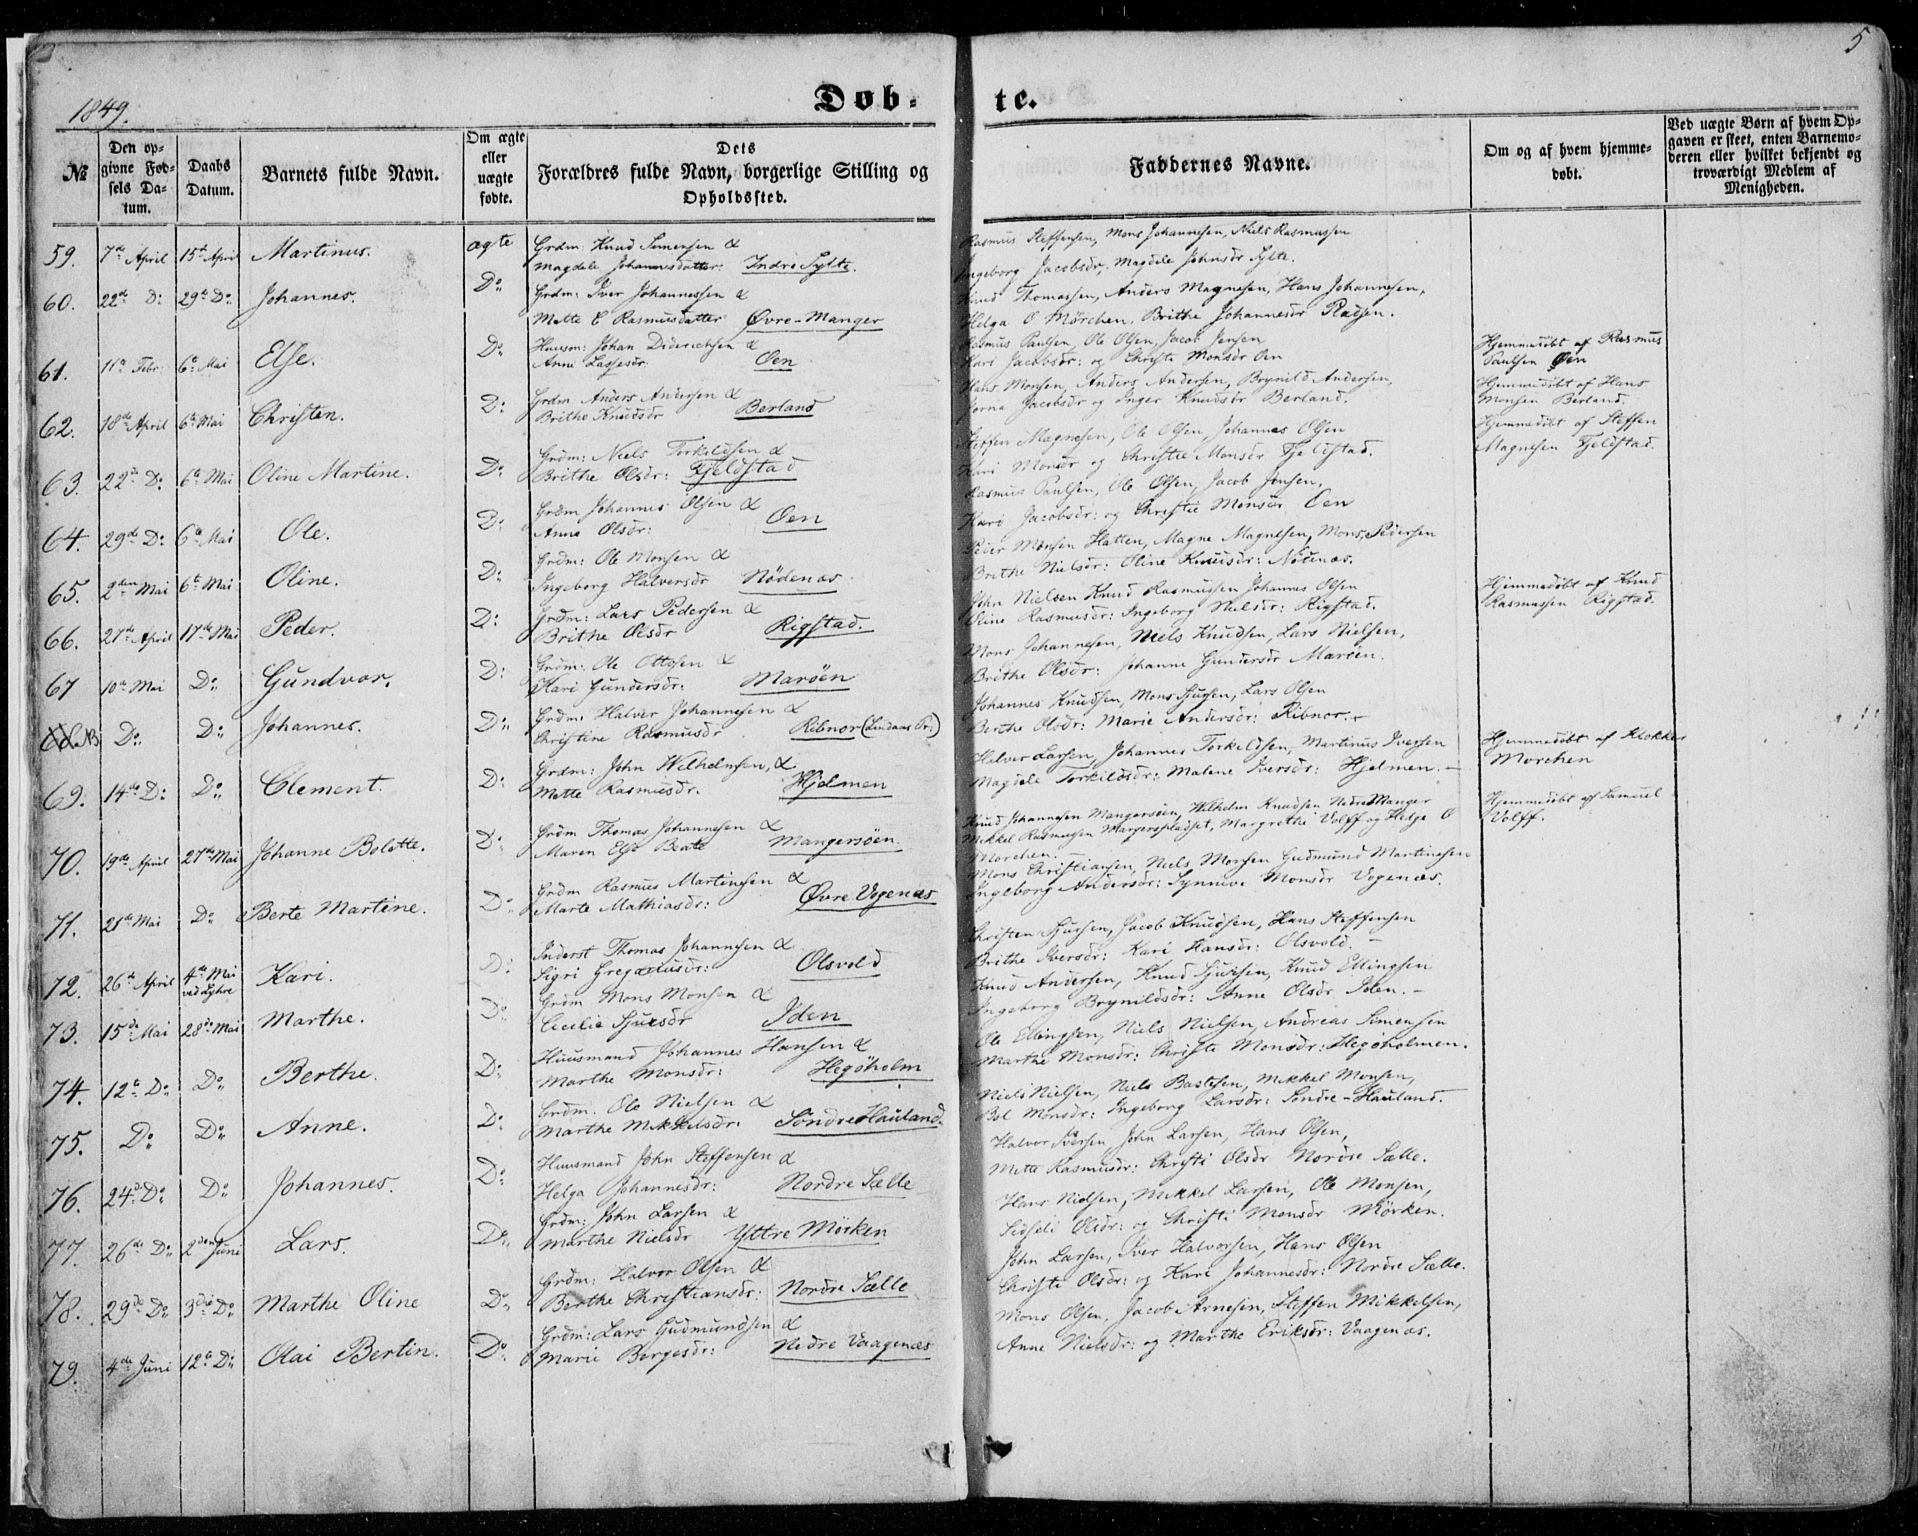 1849.
Døb-
te.
5
№
Den op-
givne Fød-
sels Da-
tum.
Daabs
Datum.
Barnets fulde Navn.
Om ægte
eller
uægte
fødte.
Dets
Forældres fulde Navn, borgerlige Stilling og
Opholdssted.
Faddernes Navne.
Om og af hvem hjemme-
døbt.
Ved uægte Børn af hvem Op-
gaven er skeet, enten Barnemo-
deren eller hvilket bekjendt og
troværdigt Medlem af
Menigheden.
59. 7de April 15de April Martinus. ægte Grdm: Knud Simensen &
Magdele Johannesdatter. Indre Sylte.
Rasmus Steffensen, Mons Johannesen, Niels Rasmussen
Ingeborg Jacobsdr. Magdele Johnsdr Sylte.
60. 22de D: 29de Do Johannes. Do Grdm: Iver Johannessen &
Mette E Rasmusdatter Øvre-Manger
Knud Thomassen, Anders Magnesen, Hans Johannesen,
Helga O Mørchen, Brithe Johannesdr Pladsen.
61. 11te Febr: 6te Mai Else. Do Huusm: Johan Diderichsen &
Anne Lassesdr. Øen
Rasmus Paulsen, Ole Olsen, Jacob Jensen
Kari Jacobsdr: og Christie Monsdr Øen
Hjemmedøbt af Rasmus
Paulsen Øen
62. 18de April 6te Mai Christen. D: Grdm Anders Andersen &
Brithe Knudsdr Berland
Hans Monsen, Anders Andersen, Brynild Andersen,
Jacobsdr og Inger Knudsdr Berland.
Hjemmedøbt af Hans
Monsen Berland.
63. 22de Do 6te Mai Oline Martine. D: Grdm: Niels Torkildsen &
Brithe Olsdr: Fjeldstad
Steffen Magnesen, Ole Olsen Johannes Olsen
Kari Monsdr og Christie Monsdr Fjeldstad.
Hjemmedøbt af Steffen
Magnesen Fjeldstad.
64. 29de Do 6te Mai Ole. Do Grdm Johannes Olsen &
Anna Olsdr: Øen
Rasmus Paulsen, Ole Olsen, Jacob Jensen,
Kari Jacobsdr: og Christie Monsdr Øen
65. 2den Mai 6te Mai Oline. D: Grdm: Ole Monsen &
Ingeborg Halvorsdr Nødenæs.
Peder Monsen Hatten, Magne Magnesen, Mons Pedersen
Brithe Nielsdr: Oline Knudsdr: Nødenæs.
66. 27de April 17de Mai Peder. D: Grdm: Lars Pedersen &
Brithe Olsdr Rigstad.
John Nielsen Knud Rasmussen Johannes Olsen
Stine Rasmusdr: Ingeborg Nielsdr: Rigstad.
Hjemmedøbt af Knud
Rasmussen Rigstad.
67 10de Mai Do Gundvor. D: Grdm: Ole Ottosen &
Kari Gundersdr: Marøen
Mons Johannesen, Niels Knudsen, Lars Nielsen,
Brithe Olsdr: Johanne Gundersdr Marøen.
68. NB Do D: Johannes. D: Grdm: Halvor Johannesen &
Christine Rasmusdr Ribnor (Lindaas Pr:)
Johannes Knudsen, Mons Sjursen, Lars Olsen
Berthe Olsdr: Marie Andersdr: Ribnor.
69. 14de D: Do Clement. D: Grdm: John Wilhelmsen, &
Mette Rasmusdr. Hjelmen
Halvor Larsen, Johannes Torkeldsen, Martinus Iversen
Magdele Torkildsdr: Malene Iversdr: Hjelmen. –
Hjemmedøbt af Klokker
Morchen
70. 19de April 27de Mai Johanne Bolette. D: Grdm Thomas Johannesen &
Maren Else Beate Mangersøen.
Knud Johannesen Mangersøen, Wilhelm Knudsen Nedre Manger
Mikkel Rasmussen Mangerspladset, Margrethe Volff og Helga O
Morchen.
Hjemmedøbt af Samuel
Volff.
71. 21de Mai Do Berte Martine. Do Grdm Rasmus Martinesen &
Marte Mathiasdr: Øvre Vogenæs
Mons Christiansen, Niels Monsen Gudmund Martinesen
Ingeborg Andersdr: Synneve Monsdr Vogenæs.
72. 26de April 4de Mai
ved Lyhre Kari. D: Inderst Thomas Johannesen &
Sigri Gregoriusdr: Olsvold
Christen Sjursen, Jacob Knudsen, Hans Steffensen
Brithe Iversdr: Kari Hansdr: Olsvold. –
73. 15de Mai 28de Mai Marthe. Do Grdm Mons Monsen &
Cecilia Sjursdr Iden
Knud Andersen, Knud Sjursen, Knud Ellingsen
Ingeborg Brynildsdr: Anne Olsdr Iden. –
74. 12te Do D: Berthe. D: Huusmand Johannes Hansen &
Marthe Monsdr: Hegøholm
Ole Ellingsen, Niels Nielsen, Andreas Simensen
Marthe Monsdr: Christi Monsdr: Hegøholmen.
75. Do Do Anne. D: Grdm. Ole Nielsen &
Marthe Mikkelsdr. Søndre Hauland.
Niels Nielsen, Niels Bastesen, Mikkel Monsen,
Bol Monsdr: Ingeborg Larsdr: Søndre-Hauland.
76. 24de Do Do Johannes. D: Huusmand John Steffensen &
Helga Johannesdr: Nordre Sælle
Halvor Iversen, John Larsen, Hans Olsen,
Mette Rasmusdr: Christi Olsdr Nordre Sælle.
77. 26de Do 2den Juni Lars. Do Grdm: John Larsen &
Marthe Nielsdr Yttre Mørken
Hans Nielsen, Mikkel Larsen, Ole Monsen,
Sidseli Olsdr: og Christi Monsdr Mørken.
78. 29de Do 3die Do Marthe Oline Do Grdm: Halvor Olsen &
Berthe Christiansdr: Nordre Sælle
John Larsen, Iver Halvorsen, Hans Olsen
Christi Olsdr: og Kari Johannesdr: Nordre Sælle.
79. 4de Juni 12te Do Olai Bertin. Do Grdm: Lars Gudmundsen &
Marie Børgesdr: Nedre Vaagenæs
Mons Olsen, Jacob Arnesen, Steffen Mikkelsen,
Anne Nielsdr: og Marthe Eriksdr: Vaagenæs.